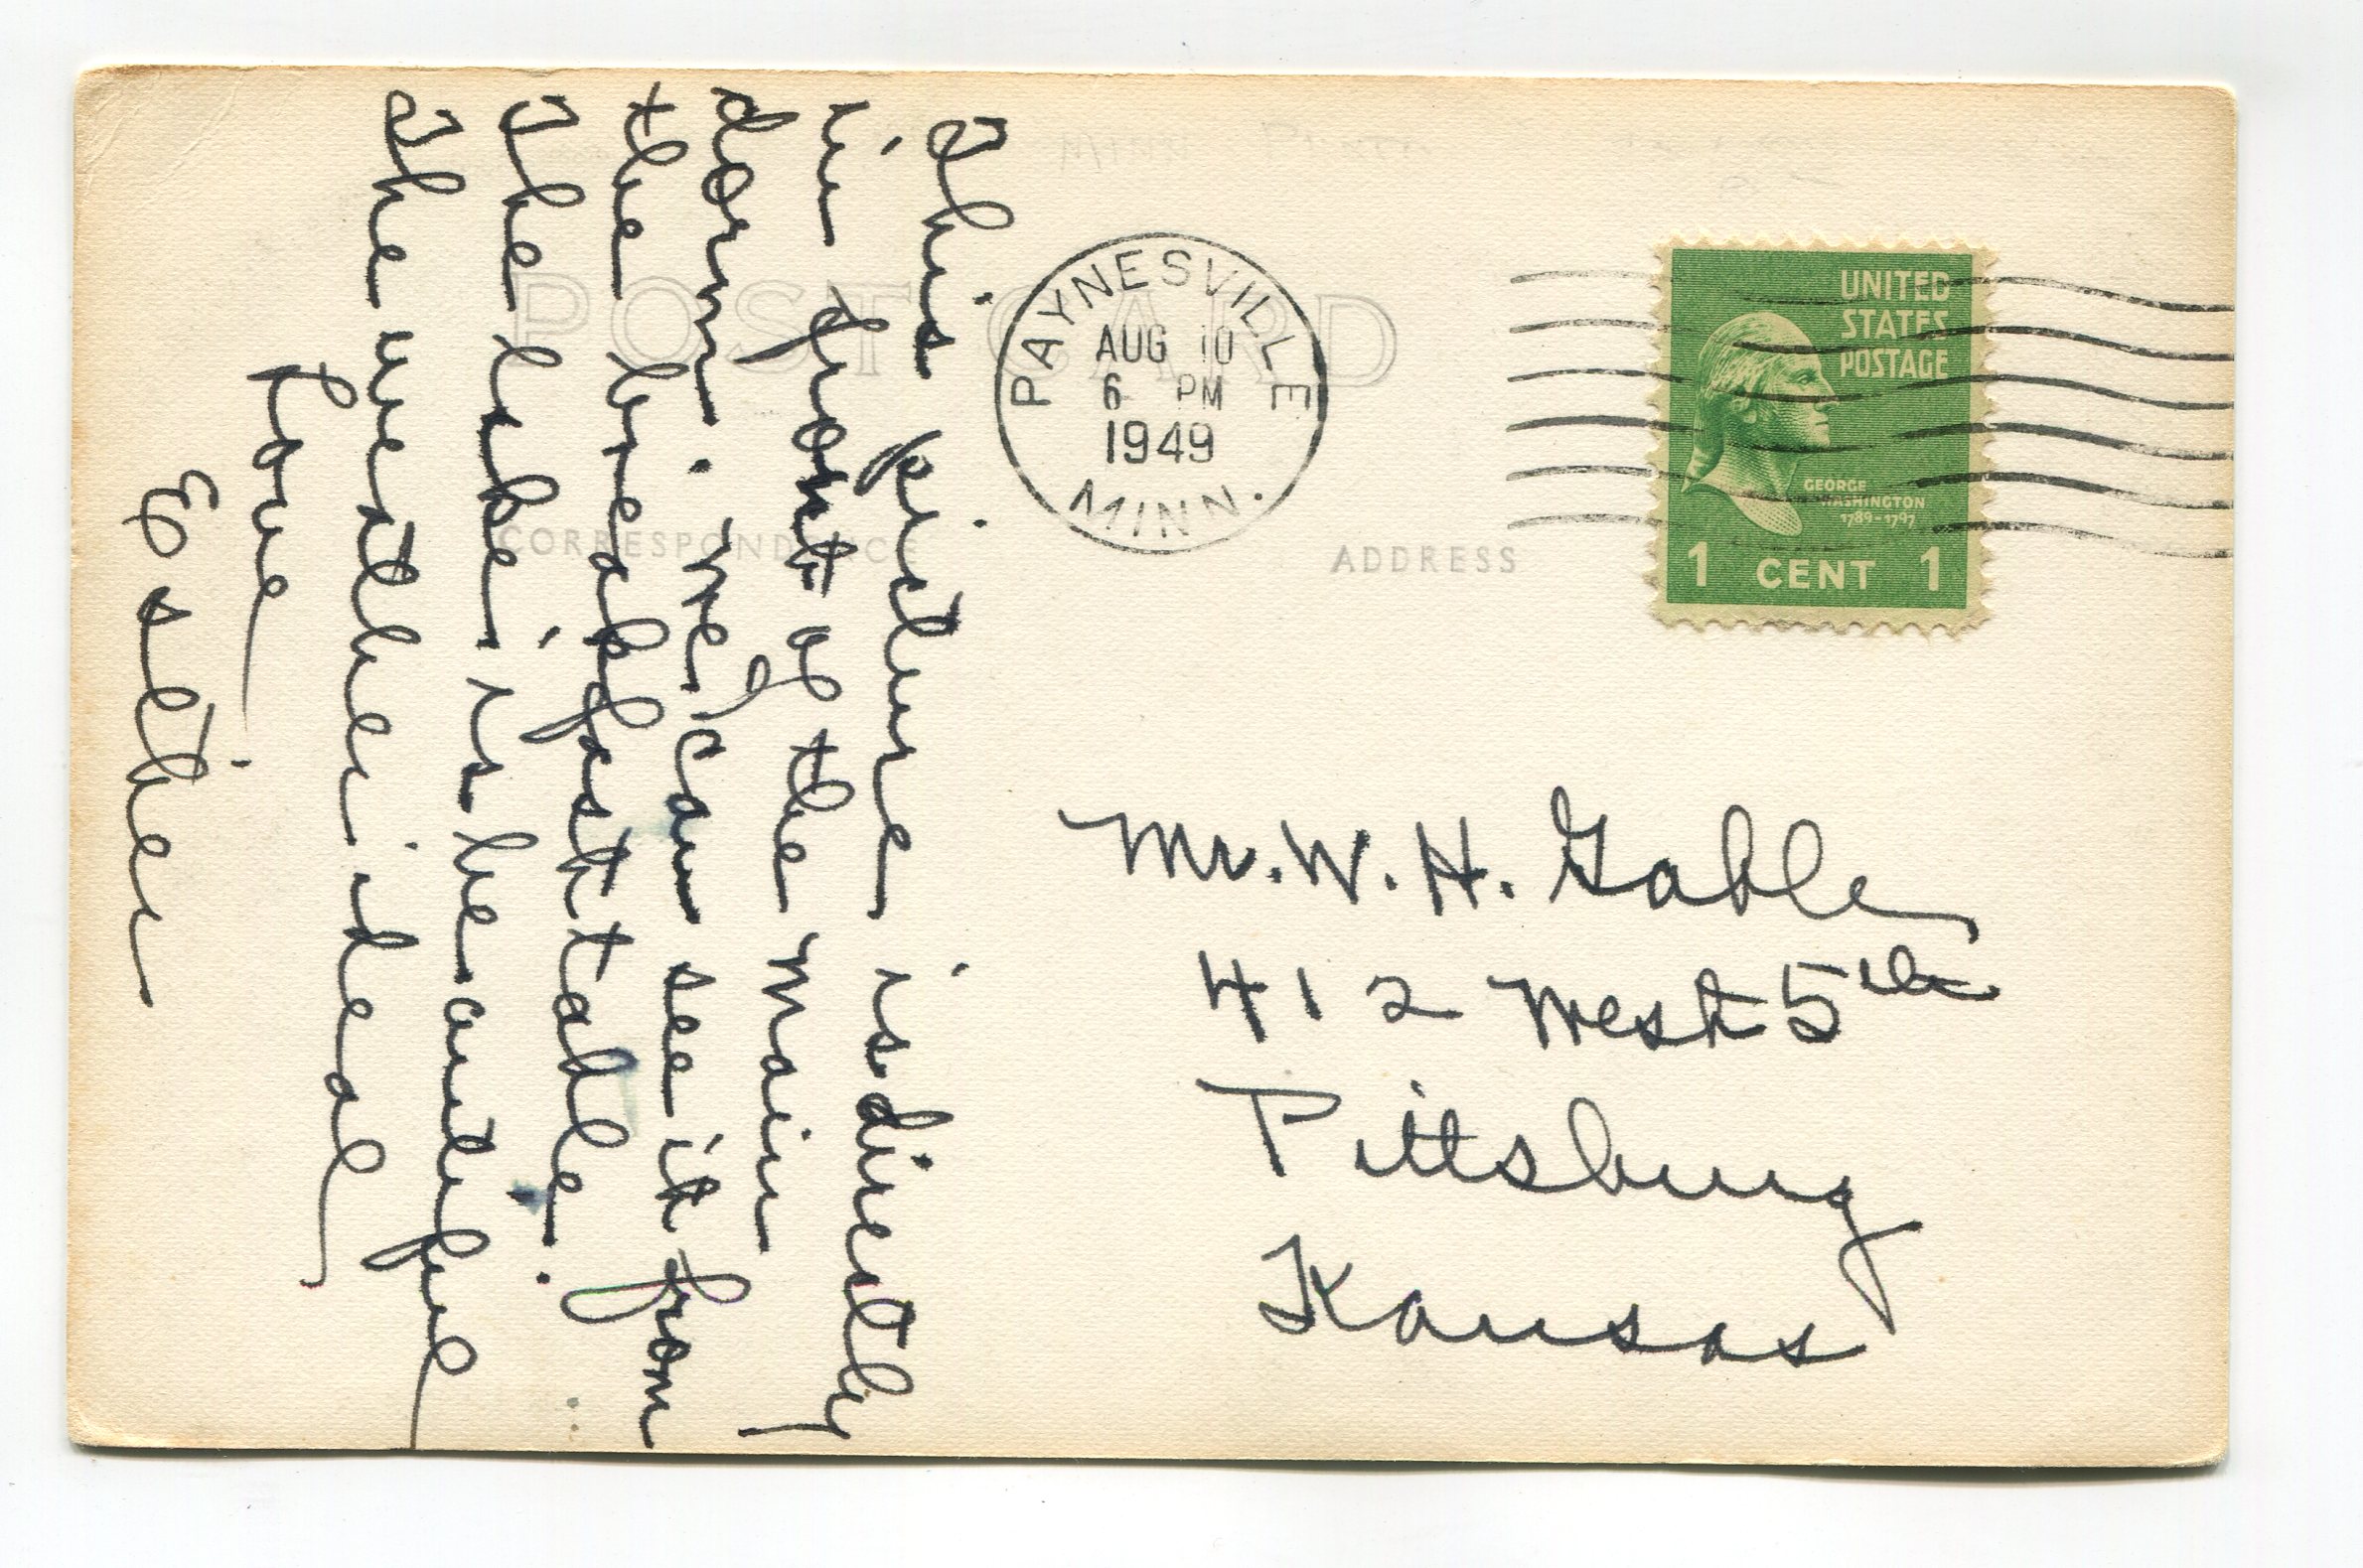 POST CARD
CORRESPONDENCE
ADDRESS
This picture is directly
in front of the main
dorm. We can see it from
the breakfast table.
The lake is beautiful
The weather ideal
Love
Esther
PAYNESVILLE
AUG 10
6 PM
1949
MINN.
UNITED
STATES
POSTAGE
GEORGE
WASHINGTON
1789-1797
1 CENT 1
Mr. W. H. Gable
412 West 5th
Pittsburg
Kansas